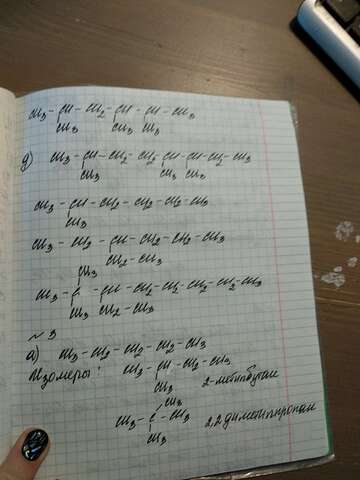 CH3 - CH - CH2 - CH - CH - CH3
CH3 CH3 CH3
g) CH3 - CH - CH2 - CH2 - CH - CH - CH2 - CH3
CH3 CH3 CH3
CH3 - CH - CH2 - CH2 - CH2 - CH3
CH3
CH3 - CH2 - CH - CH2 - CH2 - CH3
CH2 - CH3
CH3
CH3 - C - CH - CH2 - CH2 - CH2 - CH2 - CH3
CH3 CH2 - CH3
~ 3
а) CH3 - CH2 - CH2 - CH2 - CH3
Изомеры: CH3 - CH - CH2 - CH3
CH3 2-метилбутан
CH3
CH3 - C - CH3 2,2 диметилпропан
CH3